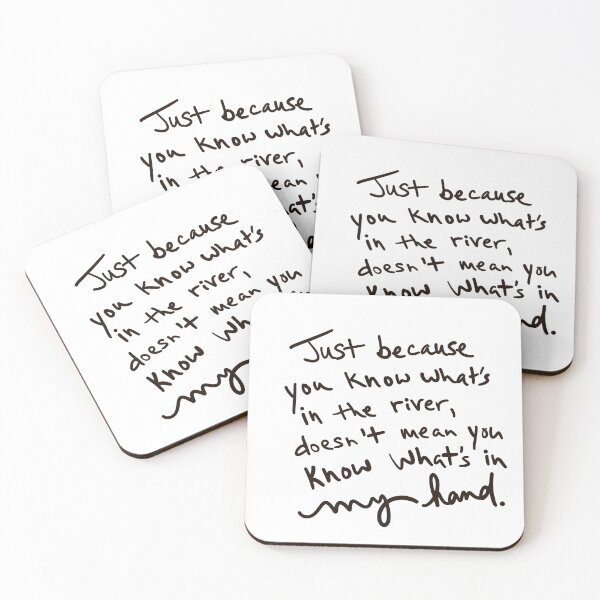 Just because
you know what's
in the river,
Just because
you know what's
in the river,
doesn't mean you
know what's in
Just because
you know what's
in the river,
doesn't mean you
know
my
Just because
you know what's
in the river,
doesn't mean you
know what's in
my hand.